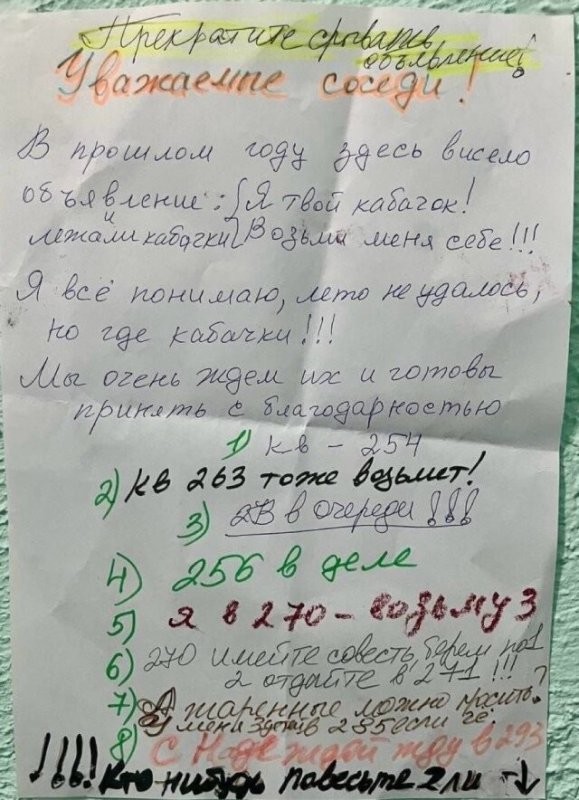 Прекратите срывать
объявление!
Уважаемые соседи!
В прошлом году здесь висело
объявление: Я твой кабачок!
и
лежали кабачки Возьми меня себе!!!
Я всё понимаю, лето не удалось,
но где кабачки!!!
Мы очень ждем их и готовы
принять с благодарностью
1) кв - 254
2) кв 263 тоже возьмет!
3) в очереди!!!
4) 256 в деле
5) Я в 270 - возьму 3
6) 270 имейте совесть берем по 1
2 отдайте в 271!!!
7) А жаренные можно просить?
У меня в 295 если чё.
8) С Надеждой жду в 293
!!!! Кто нибудь повесьте 2 ли